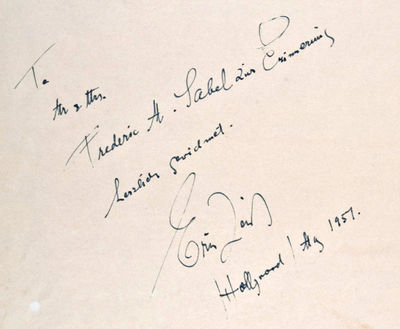 To
Mr & Mrs.
Frederic H. Sabel zur Erinnerung
herzlich gewidmet.
Eric Zeisl
Hollywood / May 1957.